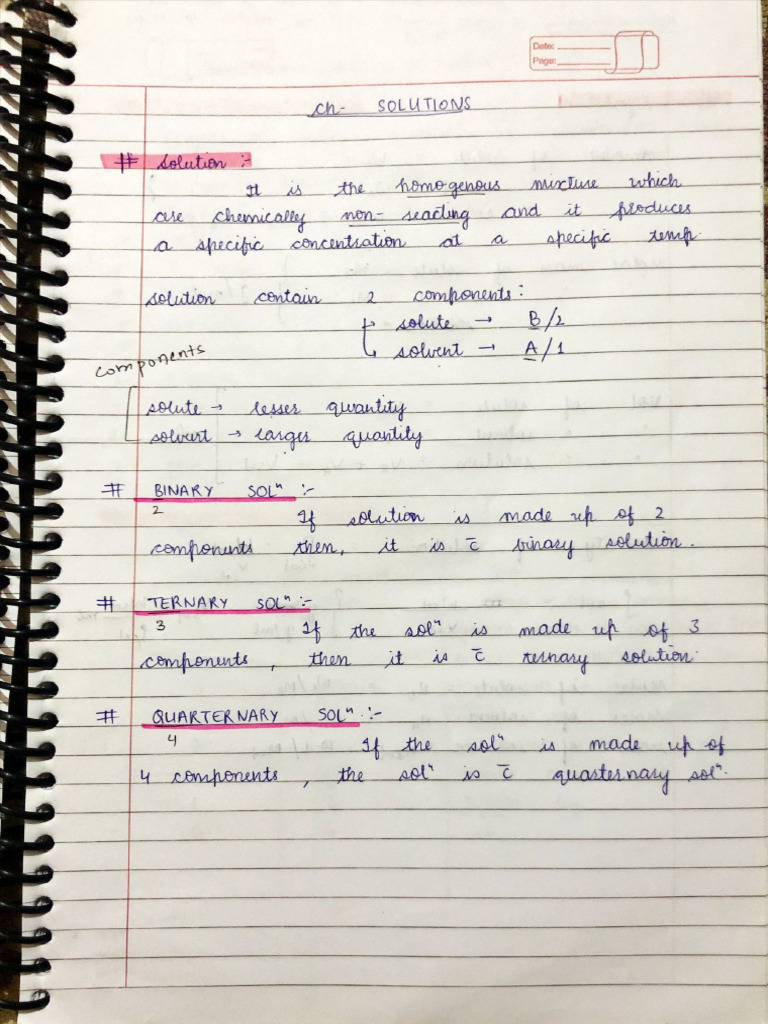 Date:
Page:
ch- SOLUTIONS
# Solution :-
It is the homogenous mixture which
are chemically non- reacting and it produces
a specific concentration at a specific temp.
solution contain 2 components:
↳ solute → B/2
↳ solvent → A/1
components
solute → lesser quantity
solvent → larger quantity
# BINARY SOLⁿ :-
2 If solution is made up of 2
components then, it is c̄ binary solution.
# TERNARY SOLⁿ :-
3 If the solⁿ is made up of 3
components, then it is c̄ ternary solution.
# QUARTERNARY SOLⁿ :-
4 If the solⁿ is made up of
4 components, the solⁿ is c̄ quarternary solⁿ.